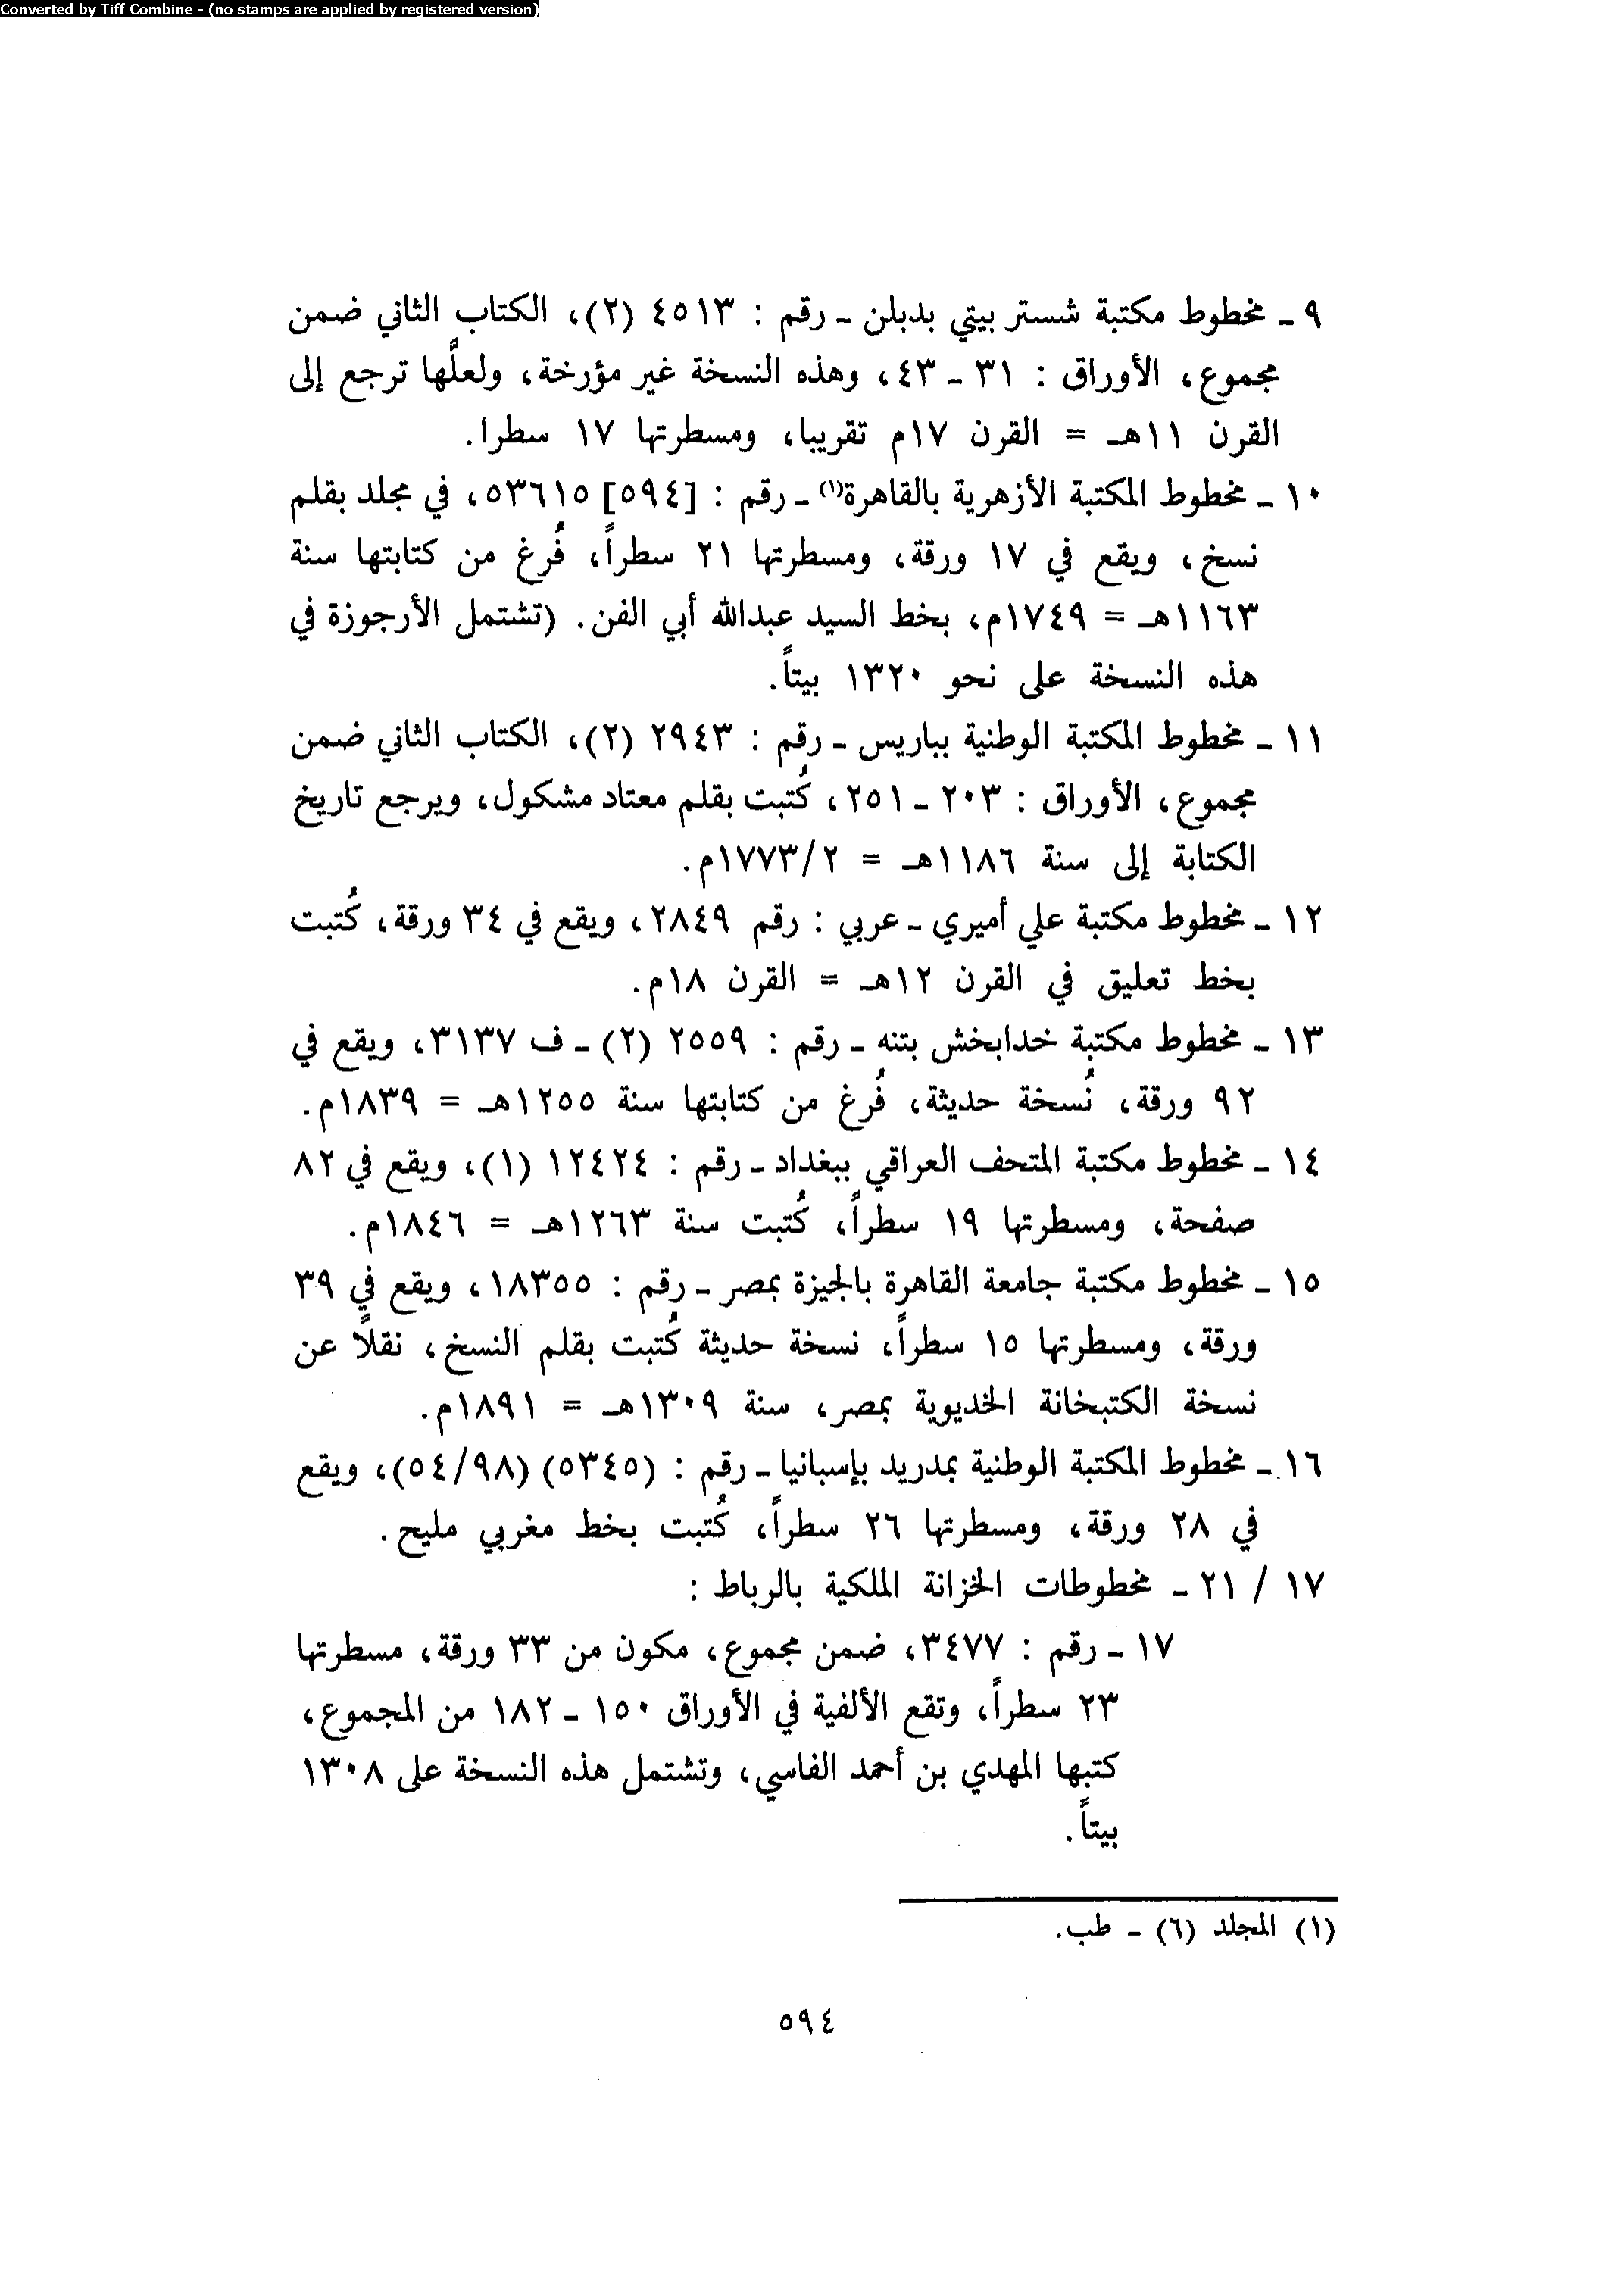 Converted by Tiff Combine - (no stamps are applied by registered version)
٩ - مخطوط مكتبة شستر بيتي بدبلن - رقم : ٤٥١٣ (٢)، الكتاب الثاني ضمن
مجموع، الأوراق : ٣١ - ٤٣، وهذه النسخة غير مؤرخة، ولعلَّها ترجع إلى
القرن ١١هـ = القرن ١٧م تقريبا، ومسطرتها ١٧ سطرا.
١٠ - مخطوط المكتبة الأزهرية بالقاهرة(١) - رقم : [٥٩٤] ٥٣٦١٥، في مجلد بقلم
نسخ، ويقع في ١٧ ورقة، ومسطرتها ٢١ سطراً، فُرغ من كتابتها سنة
١١٦٣هـ = ١٧٤٩م، بخط السيد عبدالله أبي الفن. (تشتمل الأرجوزة في
هذه النسخة على نحو ١٣٢٠ بيتاً.
١١ - مخطوط المكتبة الوطنية بباريس - رقم : ٢٩٤٣ (٢)، الكتاب الثاني ضمن
مجموع، الأوراق : ٢٠٣ - ٢٥١، كُتبت بقلم معتاد مشكول، ويرجع تاريخ
الكتابة إلى سنة ١١٨٦هـ = ١٧٧٣/٢م.
١٢ - مخطوط مكتبة علي أميري - عربي : رقم ٢٨٤٩، ويقع في ٣٤ ورقة، كُتبت
بخط تعليق في القرن ١٢هـ = القرن ١٨م.
١٣ - مخطوط مكتبة خدابخش بتنه - رقم : ٢٥٥٩ (٢) - ف ٣١٣٧، ويقع في
٩٢ ورقة، نُسخة حديثة، فُرغ من كتابتها سنة ١٢٥٥هـ = ١٨٣٩م.
١٤ - مخطوط مكتبة المتحف العراقي ببغداد - رقم : ١٢٤٢٤ (١)، ويقع في ٨٢
صفحة، ومسطرتها ١٩ سطراً، كُتبت سنة ١٢٦٣هـ = ١٨٤٦م.
١٥ - مخطوط مكتبة جامعة القاهرة بالجيزة بمصر - رقم : ١٨٣٥٥، ويقع في ٣٩
ورقة، ومسطرتها ١٥ سطراً، نسخة حديثة كُتبت بقلم النسخ، نقلاً عن
نسخة الكتبخانة الخديوية بمصر، سنة ١٣٠٩هـ = ١٨٩١م.
١٦ - مخطوط المكتبة الوطنية بمدريد بإسبانيا - رقم : (٥٣٤٥) (٥٤/٩٨)، ويقع
في ٢٨ ورقة، ومسطرتها ٢٦ سطراً، كُتبت بخط مغربي مليح.
١٧ / ٢١ - مخطوطات الخزانة الملكية بالرباط :
١٧ - رقم : ٣٤٧٧، ضمن مجموع، مكون من ٣٣ ورقة، مسطرتها
٢٣ سطراً، وتقع الألفية في الأوراق ١٥٠ - ١٨٢ من المجموع،
كتبها المهدي بن أحمد الفاسي، وتشتمل هذه النسخة على ١٣٠٨
بيتاً.
(١) المجلد (٦) - طب.
٥٩٤